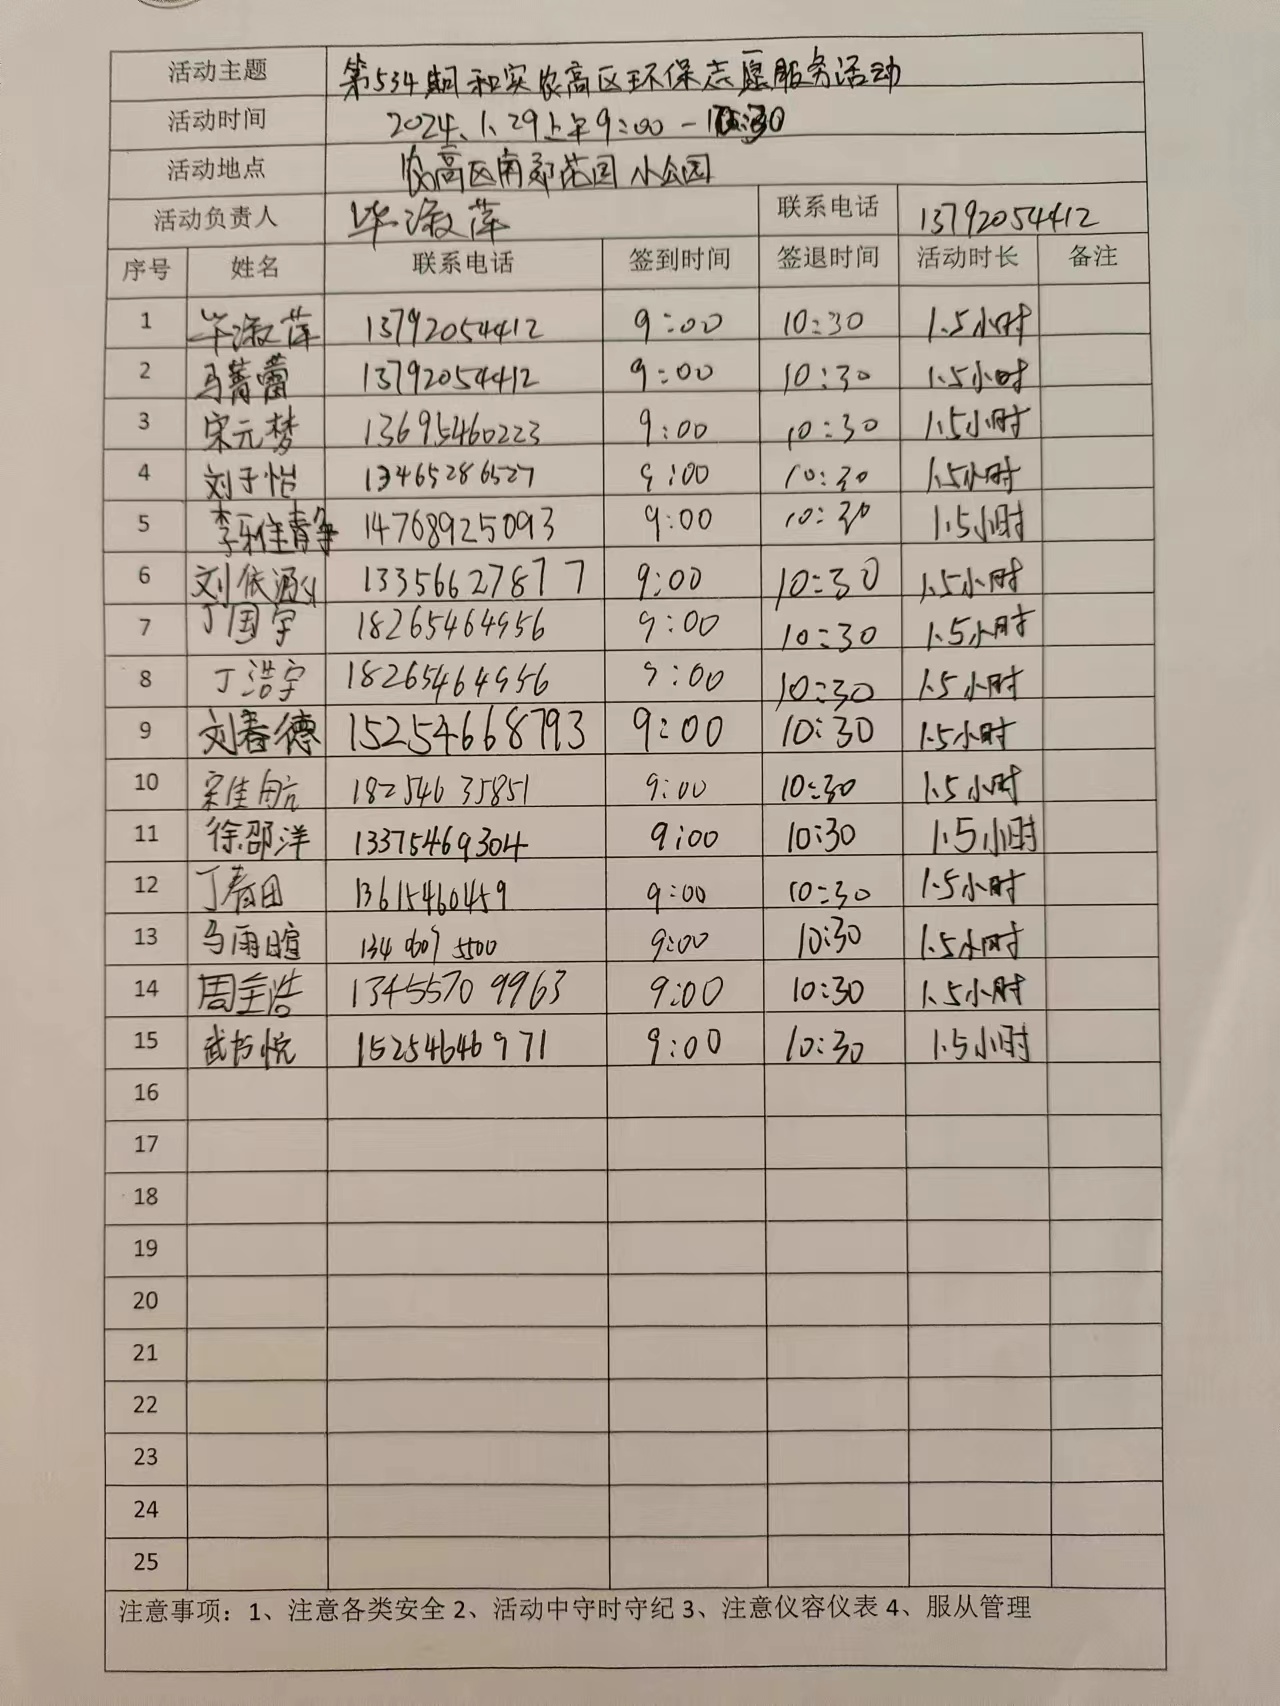 活动主题 第534期和实农高区环保志愿服务活动
活动时间 2024.1.29上午9:00-10:30
活动地点 农高区南郊花园小公园
活动负责人 毕淑萍 联系电话 13792054412
序号 姓名 联系电话 签到时间 签退时间 活动时长 备注
1 毕淑萍 13792054412 9:00 10:30 1.5小时
2 马菁蕾 13792054412 9:00 10:30 1.5小时
3 宋元梦 13695460223 9:00 10:30 1.5小时
4 刘子怡 13465286527 9:00 10:30 1.5小时
5 李雅静 14768925093 9:00 10:30 1.5小时
6 刘依涵 13356627877 9:00 10:30 1.5小时
7 丁国宇 18265464956 9:00 10:30 1.5小时
8 丁浩宇 18265464956 9:00 10:30 1.5小时
9 刘春德 15254668793 9:00 10:30 1.5小时
10 宋佳航 18254635851 9:00 10:30 1.5小时
11 徐邵洋 13375469304 9:00 10:30 1.5小时
12 丁春田 13615460459 9:00 10:30 1.5小时
13 马雨暄 134 0607 5500 9:00 10:30 1.5小时
14 周全浩 1345570 9963 9:00 10:30 1.5小时
15 15254646971 9:00 10:30 1.5小时
16
17
18
19
20
21
22
23
24
25
注意事项：1、注意各类安全 2、活动中守时守纪 3、注意仪容仪表 4、服从管理